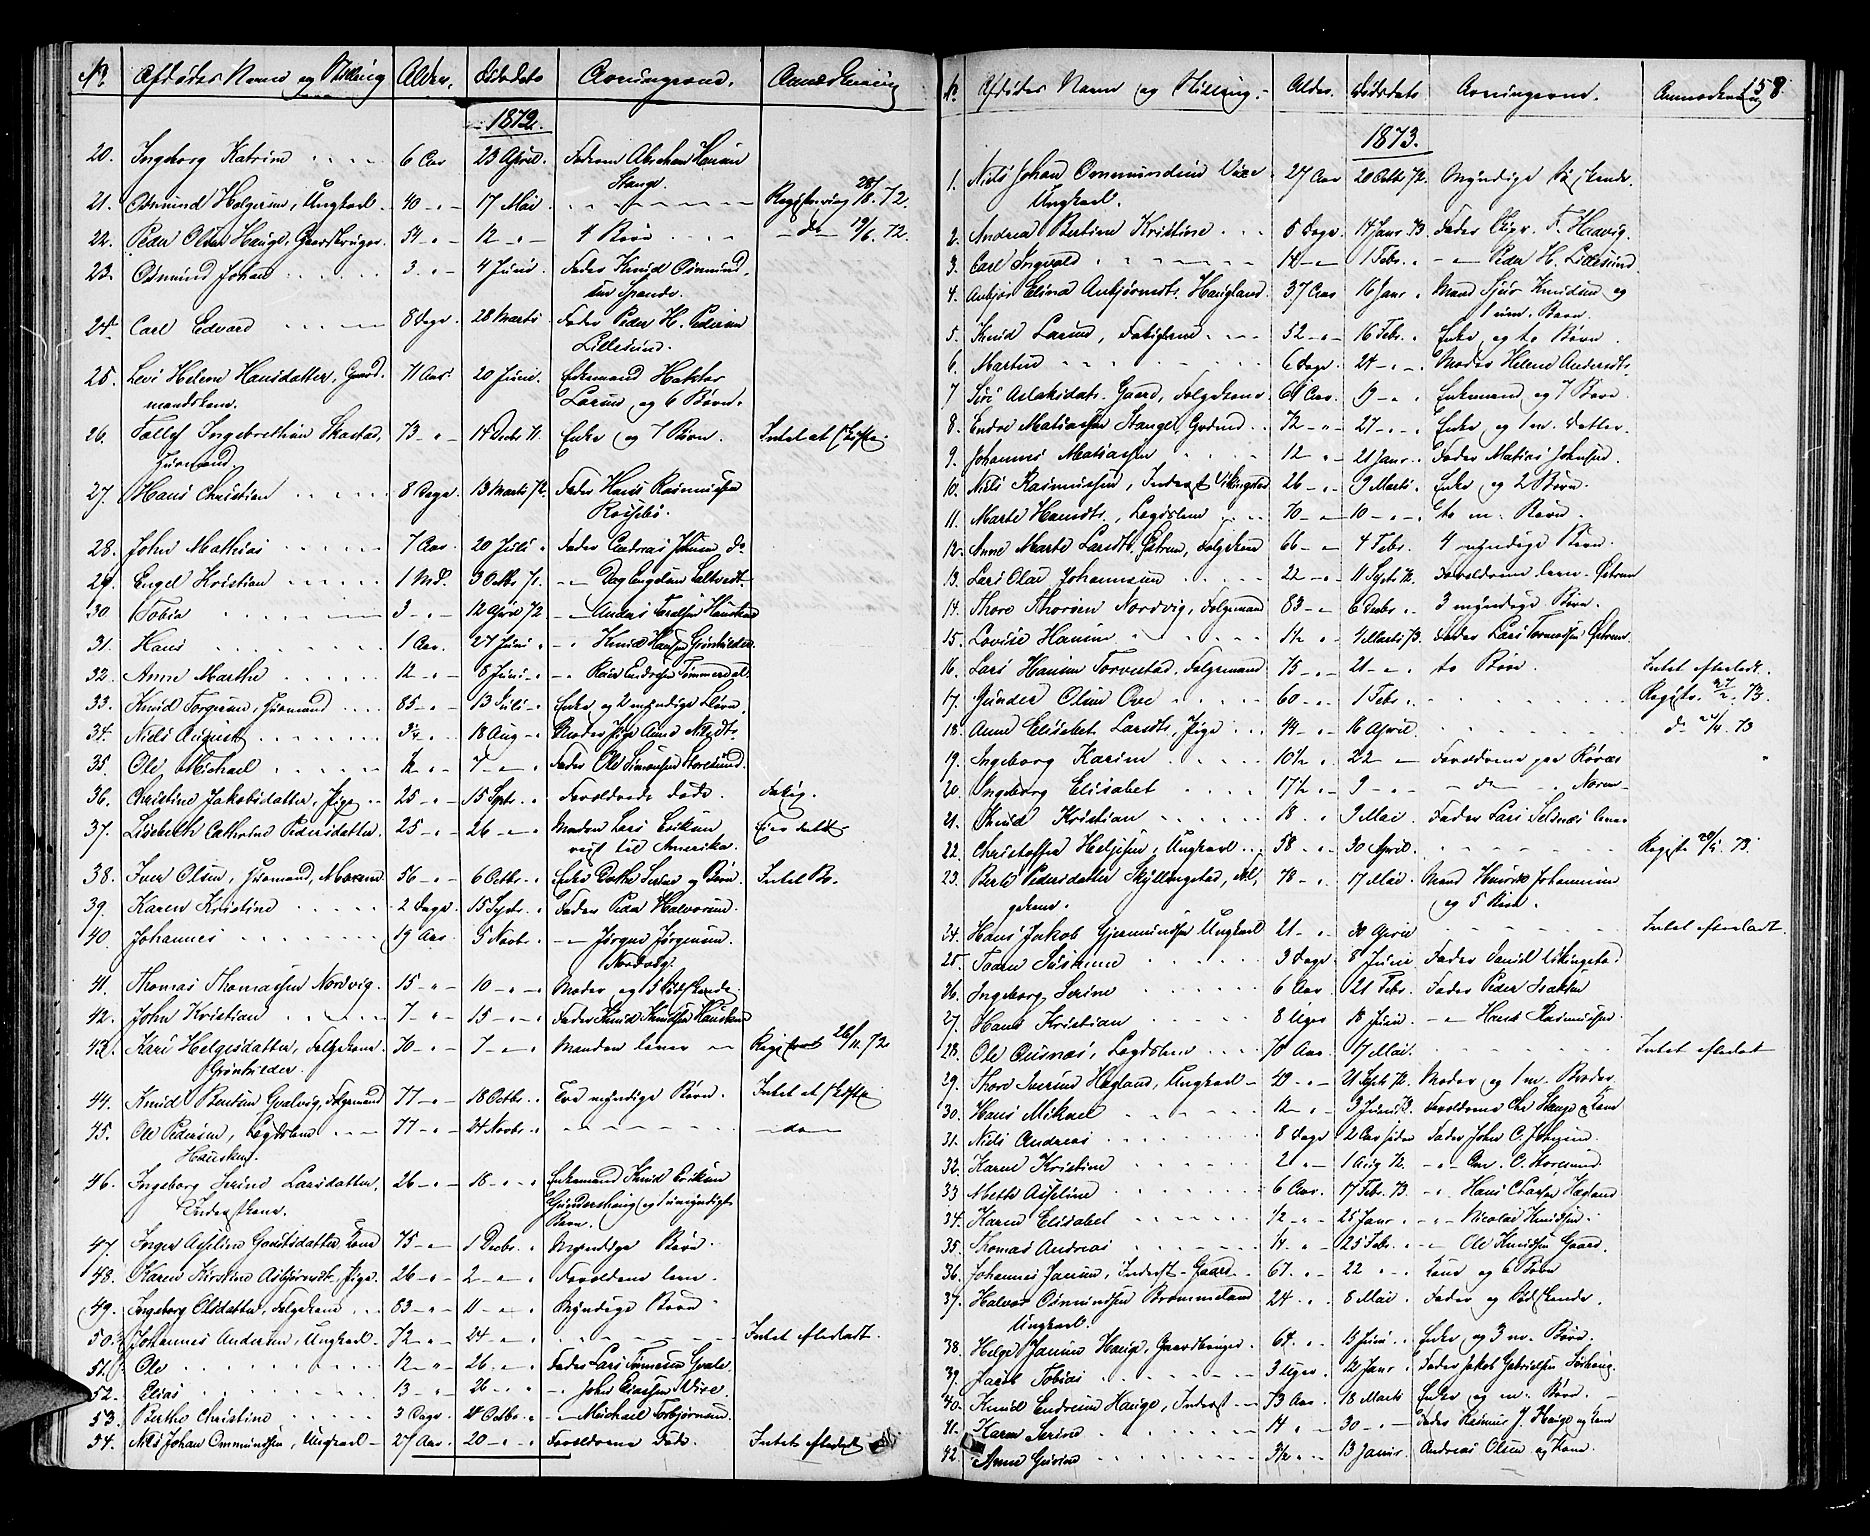 No Afdødes Navn og Stilling Alder. Dødsdato Arvingerne. Anmærkning
1872.
20. Ingeborg Katrine 6 Aar 23 April. Faderen Abraham Hansen
Stange.
21. Osmund Helgesen, Ungkarl 40 " 17 Mai Registrering 28/8. 72.
22. Peder Olsen Hauge, Gaardbruger. 54 " 12 " 4 Børn do 19/6. 72.
23. Osmund Johan 3 " 4 Juni Fader Knud Osmund-
sen Spande.
24. Carl Edvard 8 Dage. 28 Marts Fader Peder H. Pedersen
Lillesund.
25. Levi Helene Hansdatter, Gaard- 71 Aar. 20 Juni. Enkemand Haktor
mandskone. Larsen og 6 Børn.
26. Tollef Ingebretsen Skastad, 73 " 14 Decbr 71. Enke og 7 Børn. Intet at skifte.
Huusmand.
27. Hans Christian 8 Dage. 13 Marts 72. Fader Hans Rasmussen
Røksebø.
28. John Mathias 7 Aar. 20 Juli " Fader Andreas Johnsen do
29. Engel Kristian 1 Md. 3 Octbr 71. " Dag Engelsen Eltvedt
30. Tobia 3 " 12 April 72 " Andas Toralsen Hausken
31. Hans 1 Aar. 27 Juni " " Knud Hansen Grønhilder.
32. Anne Marthe 12 " 8 Juni " " Roar Endresen Tømmerdal.
33. Knud Torgersen, Huusmand 85 " 13 Juli " Enke og 2 myndige Børn.
34. Niels August 3/4 " 18 Aug " Moder Pige Anna Nilsdtr.
35. Ole Michael 1/2 " 7 " Fader Ole Simonsen Storesund.
36. Christine Jakobsdatter, Pige 25 " 15 Septr. " Forældrene døde. Fattig.
37. Lisebeth Cathrine Pedersdatter. 25 " 26 " Manden Lars Eriksen Eier intet.
reist til Amerika.
38. Iver Olsen, Huusmand, Moxene 56 " 6 Octbr. " Enke Dorthe Serine og Børn Intet Bo.
39. Karen Kristine 2 Dage. 15 Septr. " Fader Peder Halvorsen.
40. Johannes 19 Aar. 5 Novbr. " Jørgen Jørgensen.
Nordvig.
41. Thomas Thomassen Nordvig. 15 " 10 " Moder og 3 Sødskende.
42. John Kristian 7 " 15 " Fader Knud Knudsen Hausken
43. Kari Helgesdatter, Folgekone 70 " 7 " Manden lever Registreret 26/11. 72
Grønhilder.
44. Knud Bentsen Gvalvig, Folgemand 77 " 18 Octbr. " Tre myndige Børn. Intet at skifte
45. Ole Pedersen, Lægdslem 77 " 24 Novbr. " do
Hausken.
46. Ingeborg Serine Larsdatter. 26 " 18 " Enkemand Knud Eriksen
Inderstkone. Gundershaug og 1 umyndigt
Barn.
47. Inger Asseline Gautsdatter, Kone 75 " 1 Decbr. " Myndige Børn.
48. Karen Kirstine Asbjørnsdt. Pige. 26 " 2 " Forældrene leve.
49. Ingeborg Olsdatter, Folgekone 83 " 11 " Myndige Børn.
50. Johannes Andersen, Ungkarl 72 " 24 " Intet efterladt.
51. Ole 12 " 26 " Fader Lars Tønnesen Gvale.
52. Elias 13 " 26 " John Eliassen Vixe.
53. Berthe Christine 3 Dage 28 Octbr. " Michael Torbjørnsen.
54. Niels Johan Ommundsen, Ungkarl 27 Aar. 20 " Forældrene døde. Intet efterladt
No Afdødes Navn og Stilling. Alder. Dødsdato. Arvingerne. Anmærkning 58
1873.
1. Niels Johan Ommundsen Vixe 27 Aar 20 Octbr 72. Myndige Sødskende.
Ungkarl.
2. Andrea Bertine Kristine 5 Dage. 14 Januar 73. Fader Skipr. T. Hadvig.
3. Carl Ingvald 14 " 1 Febr. " Peder H. Lillesund
4. Anbjør Elina Anbjørnsdt. Haugland. 37 Aar 16 Januar " Mand Sjur Knudsen og
1 um. Barn.
5. Knud Larsen, Fattiglem 52 " 16 Febr. " Enke og to Børn.
6. Martin 6 Dage. 24 " Moder Helene Andersdt.
7. Siri Aslaksdatr. Gaard, Folgekone 61 Aar. 9 " Enkemand og 7 Børn
8. Endre Matiassen Stange, Grdmd. 72 " 27 " Enke og 1 m. datter.
9. Johannes Matiassen 12 " 21 Januar Fader Matias Johnsen.
10. Niels Rasmussen, Inderst Vikingstad 26 " 9 Marts. Enke og 2 Børn.
11. Marte Hansdtr., Lægdslem 70 " 10 " to m. Børn.
12. Anne Marte Larsdtr. Østrem, Folgekone 66 " 4 Febr. 4 myndige Børn.
13. Lars Olai Johannesen 22 " 11 Septr. 72. Forældrene leve. Østrem
14. Thore Thorsen Nordvig, Folgemand 83 " 6 Decbr. 3 myndige Børn.
15. Lovise Hansen 1 1/2 " 4 Marts 73. Fader Lars Tormodsen Østrem.
16. Lars Hansen Torvestad, Folgemand 75 " 21 " to Børn. Intet efterladt.
17. Gunder Olsen Ove 60 " 1 Febr. Registr. 27/2. 73.
18. Anne Elisabet Larsdtr., Pige 44 " 16 April do 21/4. 73
19. Ingeborg Karine 10 1/2 " 22 " Forældrene paa Røvær
20. Ingeborg Elisabet 17 1/2 " 9 " do Noren
21. Knud Kristian 18 " 9 Mai Fader Lars Selsaas lever
22. Christoffer Helgesen, Ungkarl 58 " 30 April. Registr. 20/5. 73.
23. Berte Pedersdatter Skyllingstad, Fol- 78 " 17 Mai Mand Henrik Johannesen
gekone. og 5 Børn.
24. Hans Jakob Gjermundsen Ungkarl 21 " 30 April Intet efterladt.
25. Taarn Susanne 3 Dage 8 Juni Fader Daniel Vikingstad
26. Ingeborg Serine 6 Aar. 21 Febr. Fader Peder Isaksen
27. Hans Kristian 8 Uger 18 Juni " Hans Rasmussen.
28. Ole Ousnæs, Lægdslem 70 Aar. 17 Mai. Intet efterladt
29. Thore Iversen Hagland, Ungkarl 49 " 21 Septr. 72. Moder og 1 m. Broder.
30. Hans Mikael 12 " 3 Juni 73. Forældrene Chr. Stange og Kone
31. Niels Andreas 8 Dage 2 Aar siden Fader John C. Johnsen.
32. Karen Kristine 2 " 1 Aug 72. " Chr. C. Storesund.
33 Mette Asseline 6 Aar. 17 Febr. 73 " Hans Clausen Hagland
34. Karen Elisabet 1/2 " 25 Januar " Nicolai Knudsen.
35. Thomas Andreas 1/4 " 25 Febr. " Ole Knudsen Gaard.
36. Johannes Jansen, Inderst Gaard 67. " 22 " Kone og 6 Børn
37. Halvor Osmundsen Brommeland 24 " 8 Mai. Fader og Sødskende.
Ungkarl.
38. Helge Jansen Hauge, Gaardbruger 64. " 13 Juni " Enke og 3 m. Børn.
39. Jacob Tobias 3 Uger. 12 Januar " Fader Jakob Gabrielsen Sørhaug.
40. Knud Endresen Hauge, Inderst 73 Aar. 18 Marts Enke og m. Børn.
41. Karen Serine 14 " 30 " Fader Rasmus J. Hauge og Kone
42. Anne Gurine 3/4 " 13 Januar. Andreas Olsen og Kone.